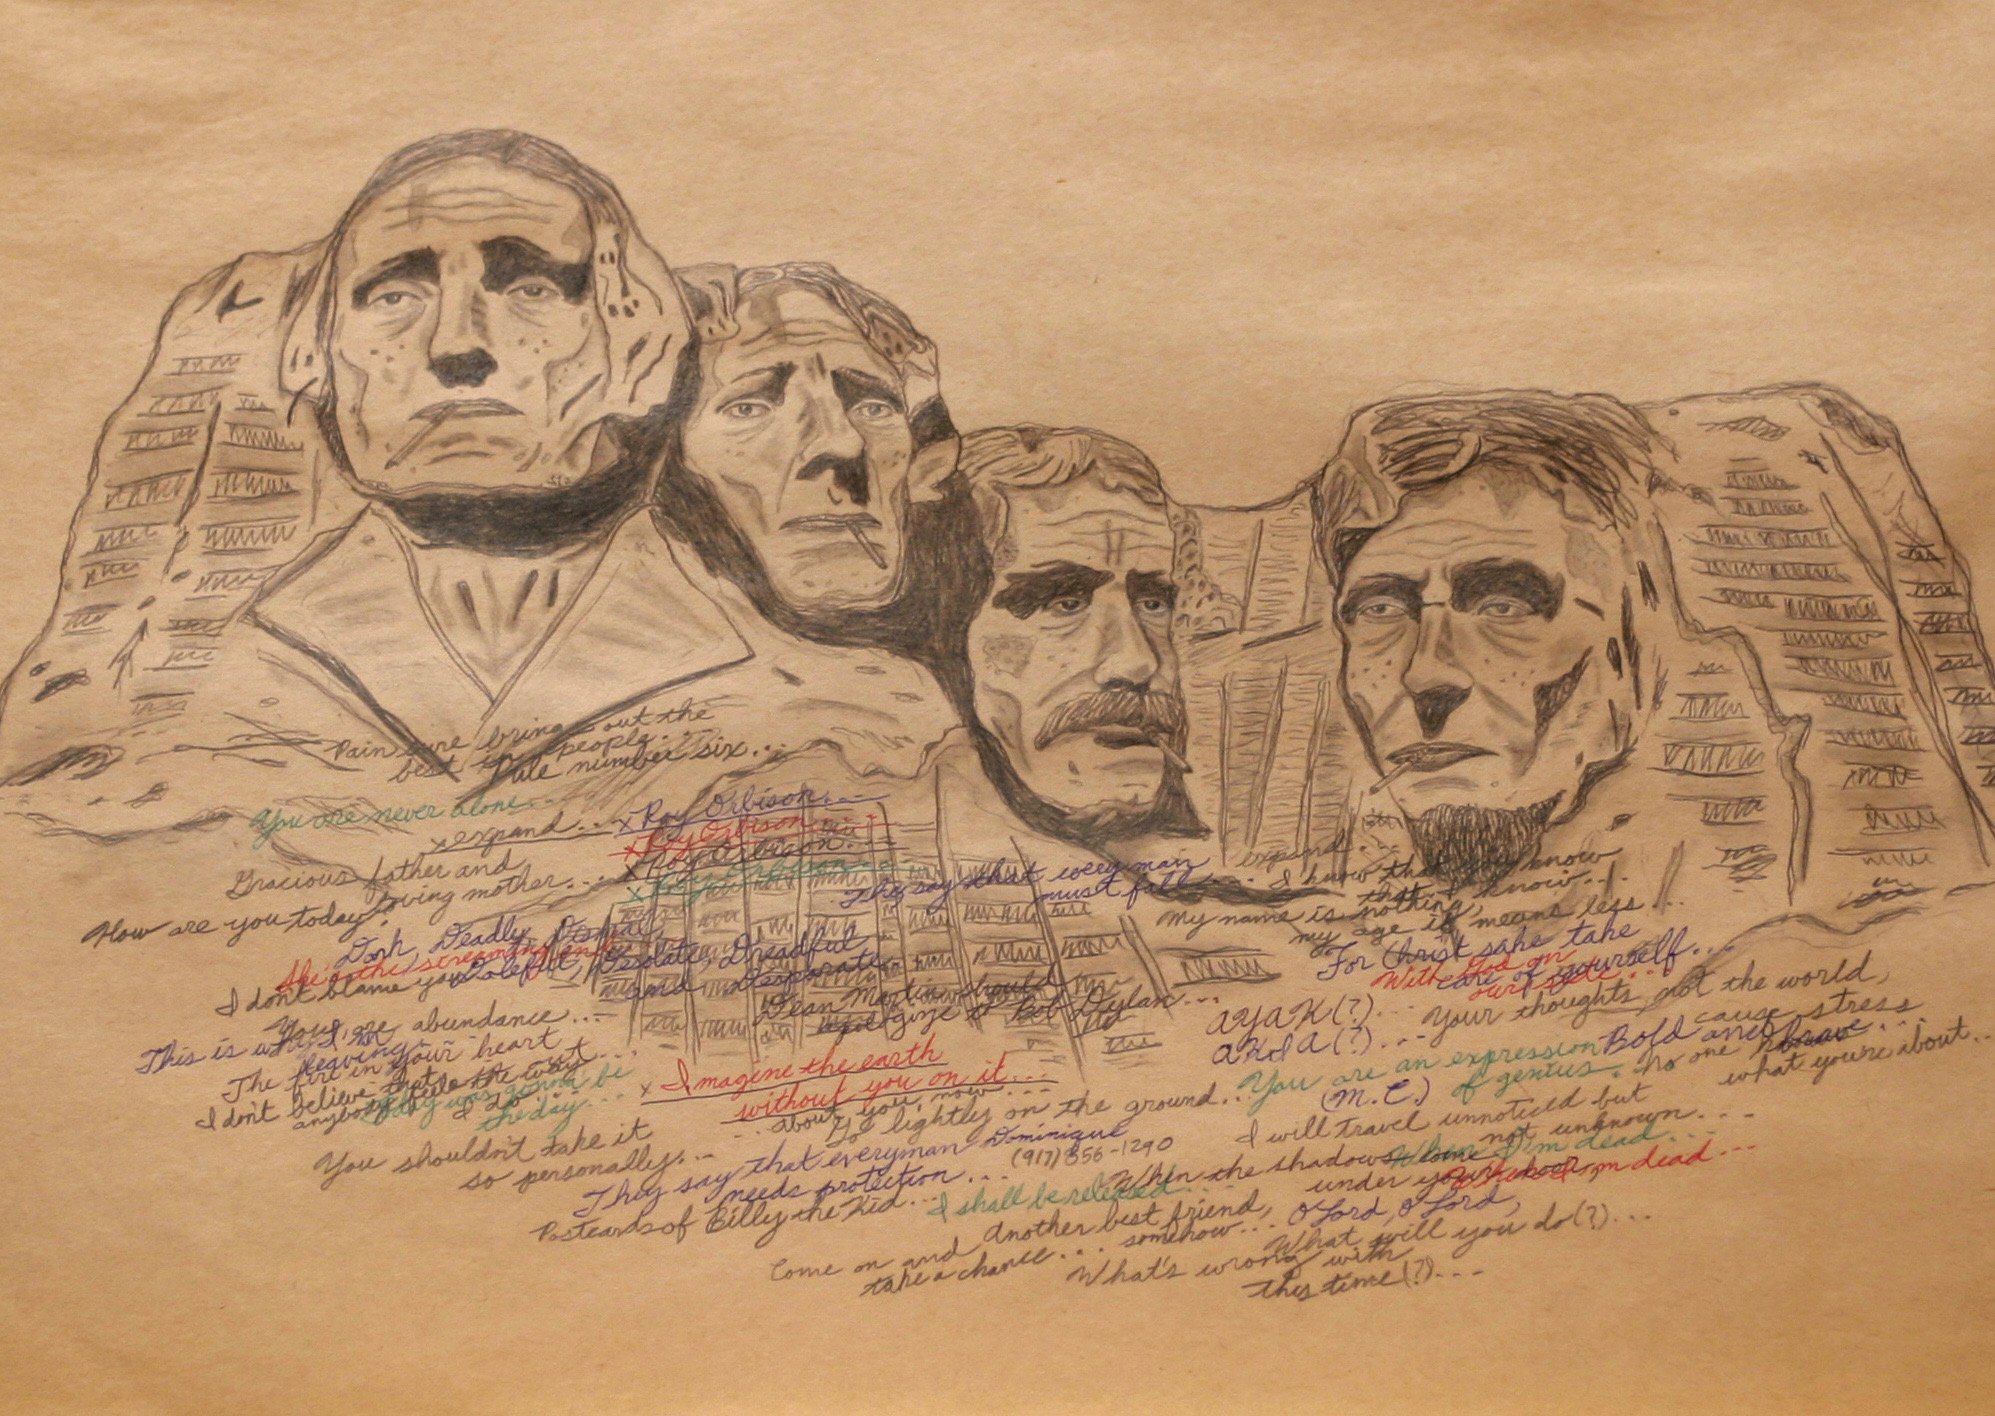 Pain sure brings out the
best in people...
Rule number six...
You are never alone...
x expand...
x Roy Orbison...
x Roy Orbison...
x Roy Orbison...
x Roy Orbison...
Gracious father and
loving mother...
How are you today?
They say that every man
must fall...
expand...
I know that you know
that I know...
My name is nothing,
my age it means less...
Dark, Deadly, Dismal,
Doleful, Desolate, Dreadful
and Desperate...
I don't blame you
Dean Martin should
apologize to Bob Dylan...
For Christ sake take
care of yourself...
With God on
our side...
AYAK(?)...
AKdA(?)...
Your thoughts, not the world,
cause stress
abundance...
This is why I'm
leaving...
The fire in your heart
I don't believe that
anybody feels the way
I do...
Today was gonna be
the day...
x Imagine the earth
without you on it...
...about you, now...
Go lightly on the ground...
You are an expression
of genius.
Bold and brave...
(M.C.)
No one knows
what you're about...
I will travel unnoticed but
not unknown...
You shouldn't take it
so personally...
They say that everyman
needs protection...
Dominique
(917) 856-1290
When I'm dead...
When I'm dead...
When the shadows come
under your door,
Postcards of Billy the Kid...
I shall be released...
Another best friend,
somehow...
O Lord, O Lord,
What will you do(?)...
Come on and
take a chance...
What's wrong with
this time(?)...